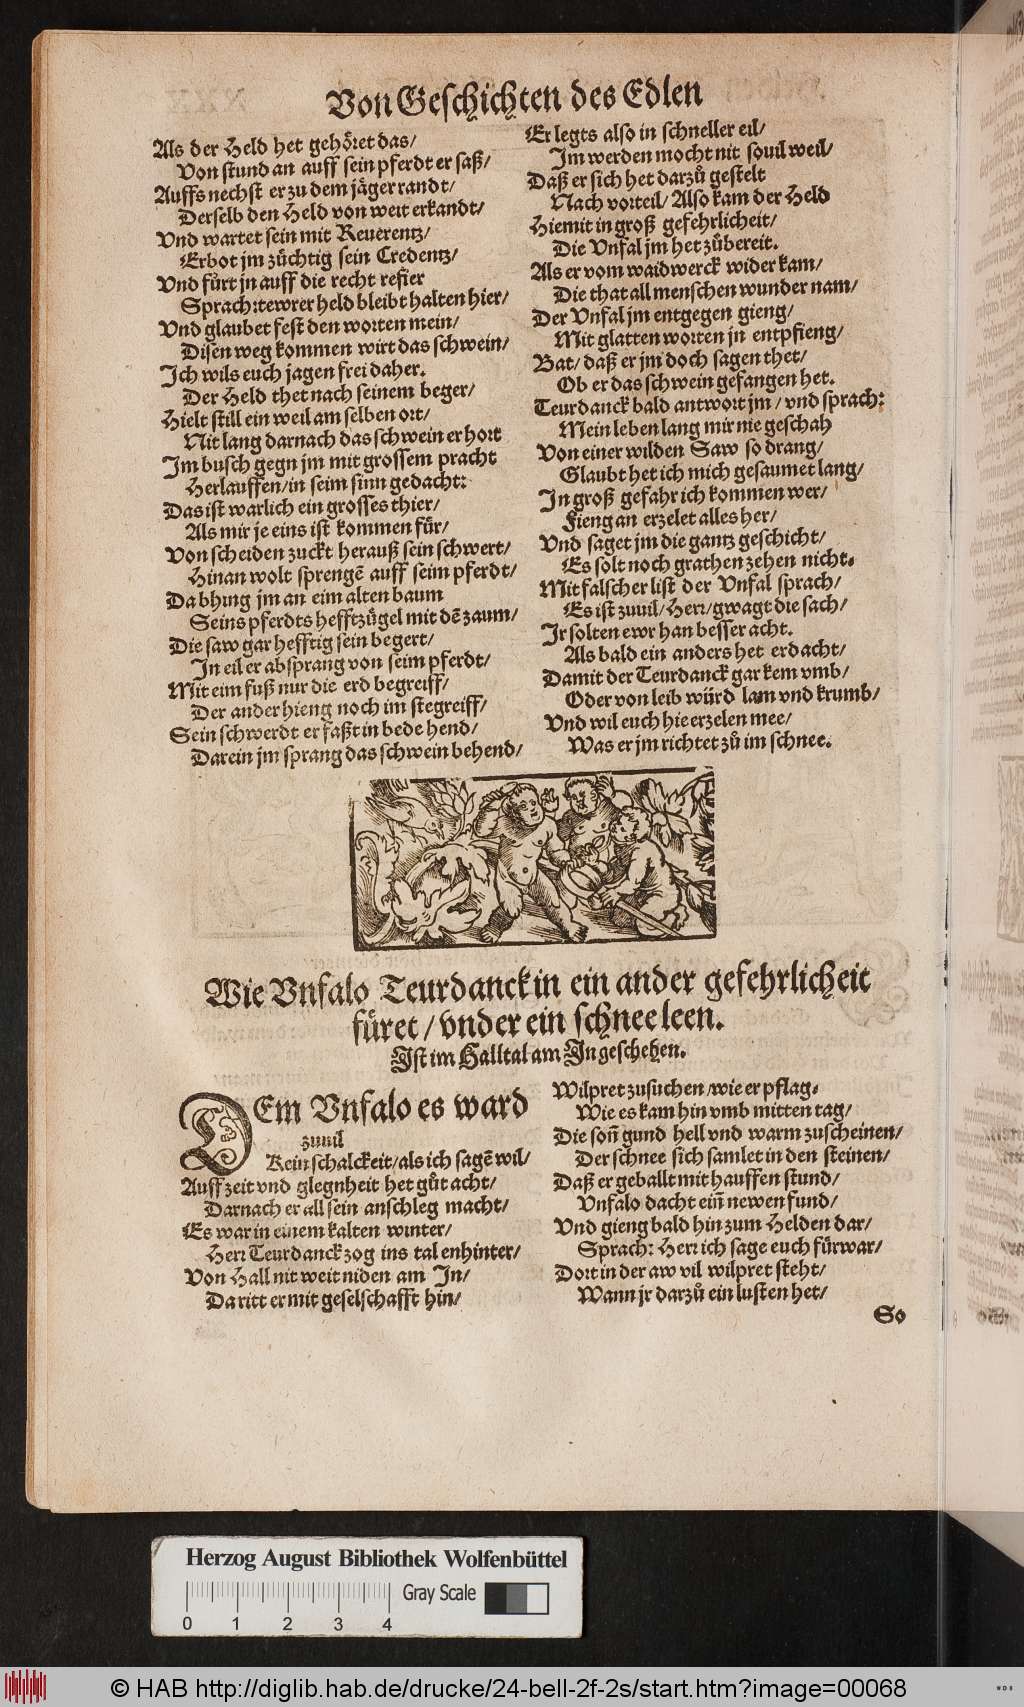 Von Geschichten des Edlen
Als der Held het gehöret das/
Von stund an auff sein pferdt er saß/
Auffs nechst er zu dem jäger randt/
Derselb den Held von weit erkandt/
Vnd wartet sein mit Reuerentz/
Erbot jm züchtig sein Credentz/
Vnd fůrt jn auff die recht refier
Sprach: tewrer held bleibt halten hier/
Vnd glaubet fest den worten mein/
Disen weg kommen wirt das schwein/
Ich wils euch jagen frei daher.
Der Held thet nach seinem beger/
Hielt still ein weil am selben ort/
Nit lang darnach das schwein er hort
Im busch gegn jm mit grossem pracht
Herlauffen/ in seim sinn gedacht:
Das ist warlich ein grosses thier/
Als mir je eins ist kommen für/
Von scheiden zuckt herauß sein schwert/
Hinan wolt sprengē auff seim pferdt/
Da bhung jm an eim alten baum
Seins pferdts hefftzügel mit dē zaum/
Die saw gar hefftig sein begert/
In eil er absprang von seim pferdt/
Mit eim fuß nur die erd begreiff/
Der ander hieng noch im stegreiff/
Sein schwerdt er faßt in bede hend/
Darein jm sprang das schwein behend/
Er legts also in schneller eil/
Im werden mocht nit souil weil/
Daß er sich het darzů gestelt
Nach vorteil/ Also kam der Held
Hiemit in groß gefehrlicheit/
Die Vnfal jm het zůbereit.
Als er vom waidwerck wider kam/
Die that all menschen wunder nam/
Der Vnfal jm entgegen gieng/
Mit glatten worten jn entpfieng/
Bat/ daß er jm doch sagen thet/
Ob er das schwein gefangen het.
Teurdanck bald antwort jm/ vnd sprach:
Mein leben lang mir nie geschah
Von einer wilden Saw so drang/
Glaubt het ich mich gesaumet lang/
In groß gefahr ich kommen wer/
Fieng an erzelet alles her/
Vnd saget jm die gantz geschicht/
Es solt noch grathen zehen nicht.
Mit falscher list der Vnfal sprach/
Es ist zuuil/ Herr/ gwagt die sach/
Ir solten ewr han besser acht.
Als bald ein anders het erdacht/
Damit der Teurdanck gar kem vmb/
Oder von leib würd lam vnd krumb/
Vnd wil euch hie erzelen mee/
Was er jm richtet zů im schnee.
Wie Vnfalo Teurdanck in ein ander gefehrlicheit
füret/ vnder ein schneeleen.
Ist im Halltal am In geschehen.
DEm Vnfalo es ward
zuuil
Kein schalckeit/ als ich sagē wil/
Auff zeit vnd glegnheit het gůt acht/
Darnach er all sein anschleg macht/
Es war in einem kalten winter/
Herr Teurdanck zog ins tal enhinter/
Von Hall nit weit niden am In/
Da ritt er mit geselschafft hin/
Wilpret zusuchen/ wie er pflag.
Wie es kam hin vmb mitten tag/
Die soñ gund hell vnd warm zuscheinen/
Der schnee sich samlet in den steinen/
Daß er geballt mit hauffen stund/
Vnfalo dacht eiñ newen fund/
Vnd gieng bald hin zum Helden dar/
Sprach: Herr ich sage euch fürwar/
Dort in der aw vil wilpret steht/
Wann jr darzů ein lusten het/
So
Herzog August Bibliothek Wolfenbüttel
Gray Scale
0 1 2 3 4
© HAB http://diglib.hab.de/drucke/24-bell-2f-2s/start.htm?image=00068